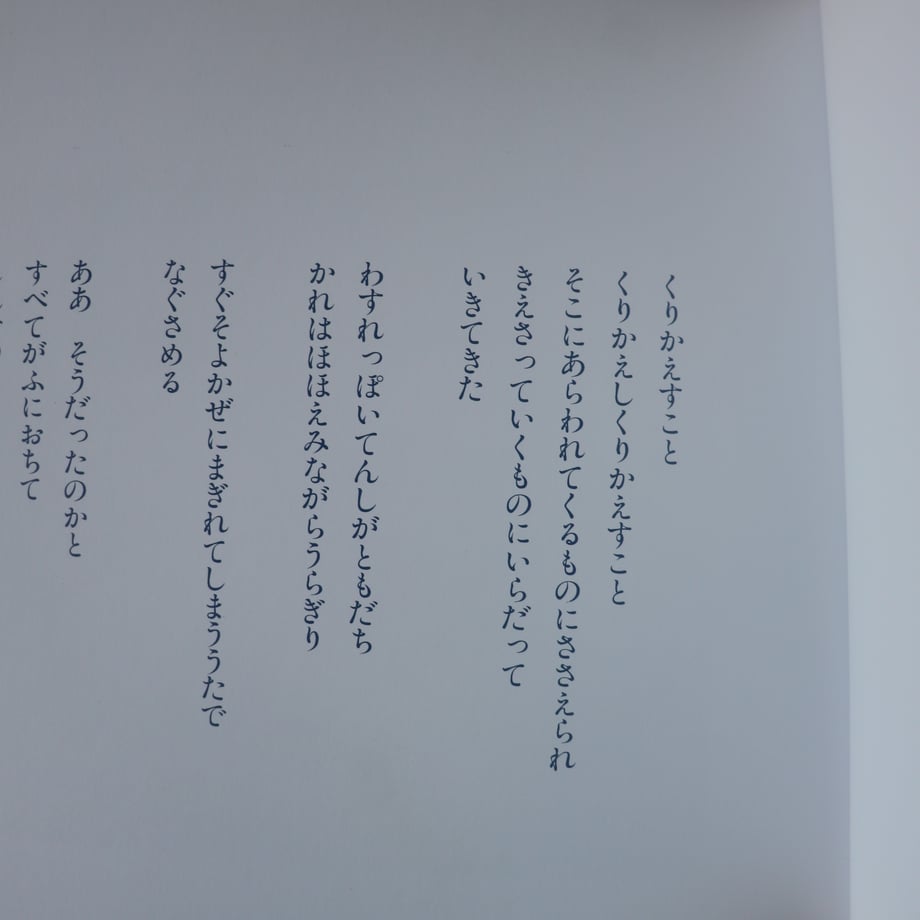 くりかえすこと
くりかえしくりかえすこと
そこにあらわれてくるものにささえられ
きえさっていくものにいらだって
いきてきた
わすれっぽいてんしがともだち
かれはほほえみながらうらぎり
すぐそよかぜにまぎれてしまううたで
なぐさめる
ああ　そうだったのかと
すべてがふにおちて